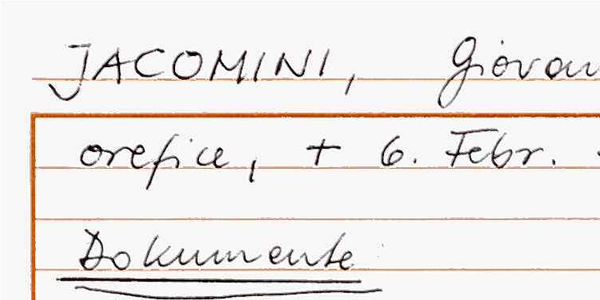 JACOMINI, Giovan
orefice, + 6. Febr.
Dokumente